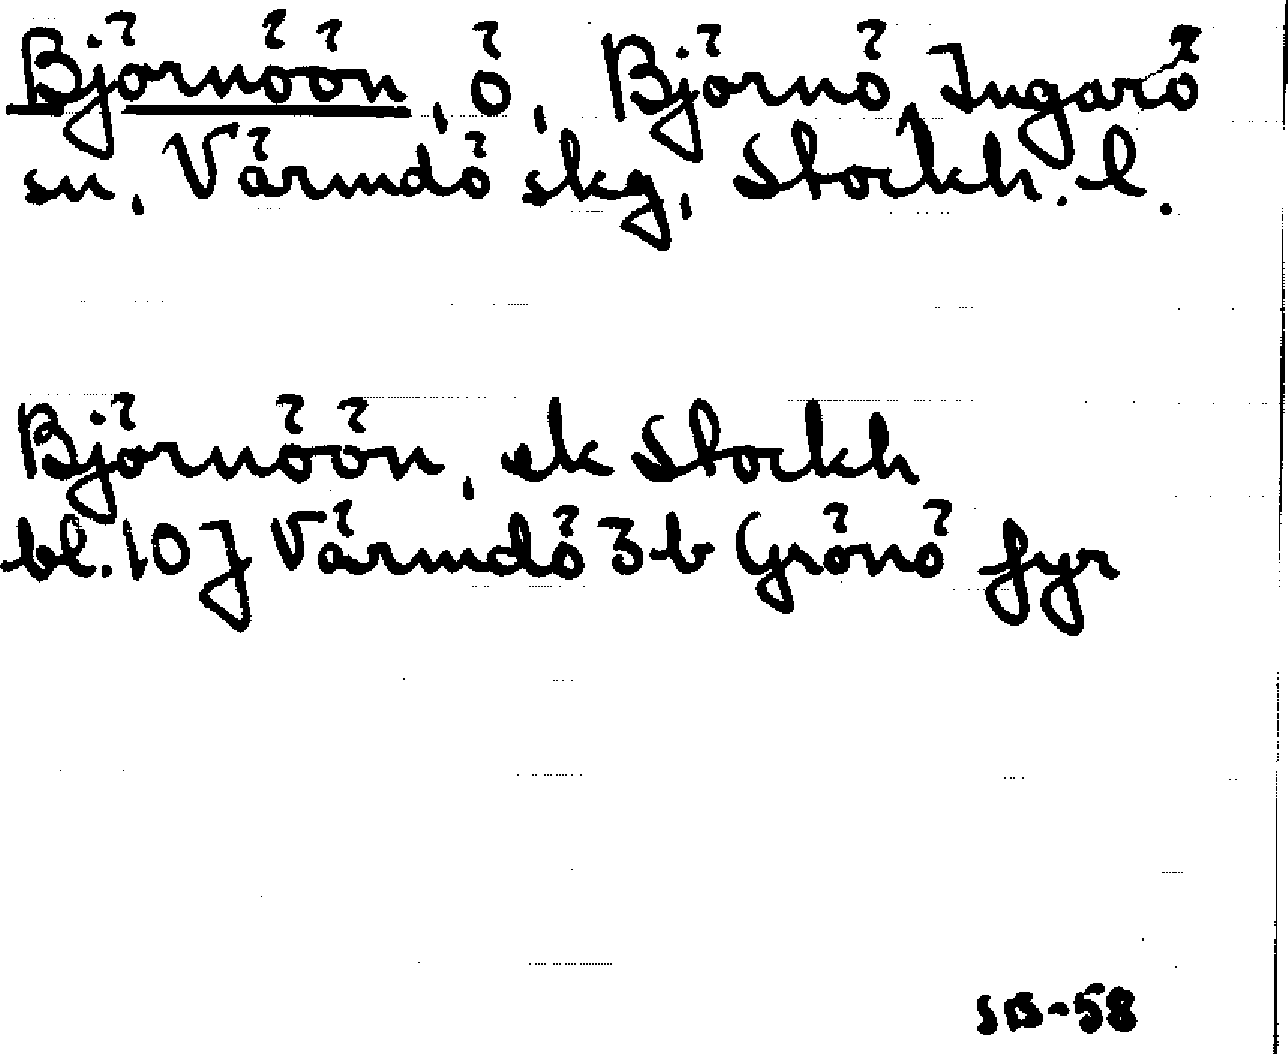 Björnöön, ö, Björnö, Ingarö
sn, Värmdö skg, Stockh. l.
Björnöön, ek Stockh
bl. 10 J Värmdö 3b Grönö fyr
SB-58